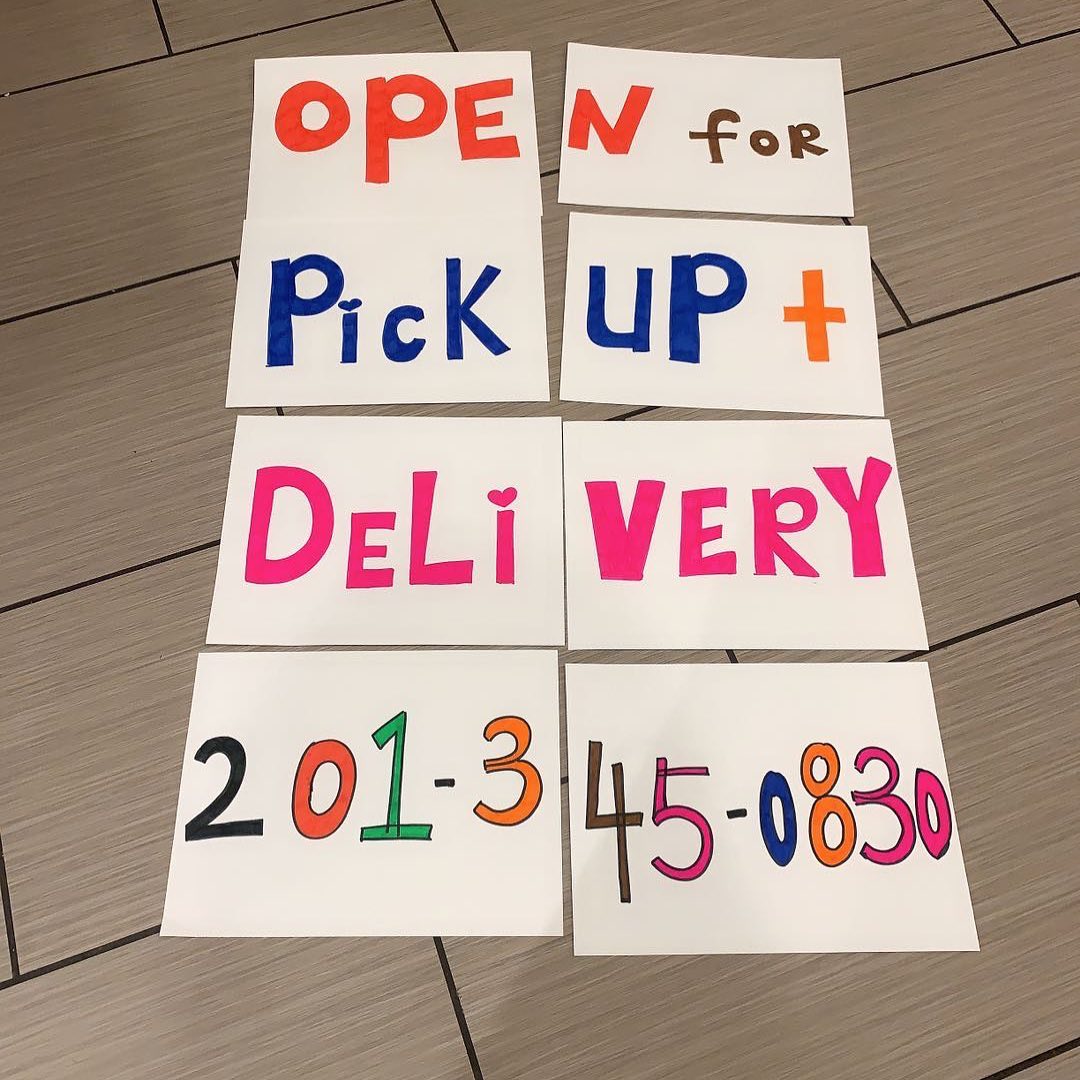 OPEN for
Pick UP +
DELiVERY
201-345-0830